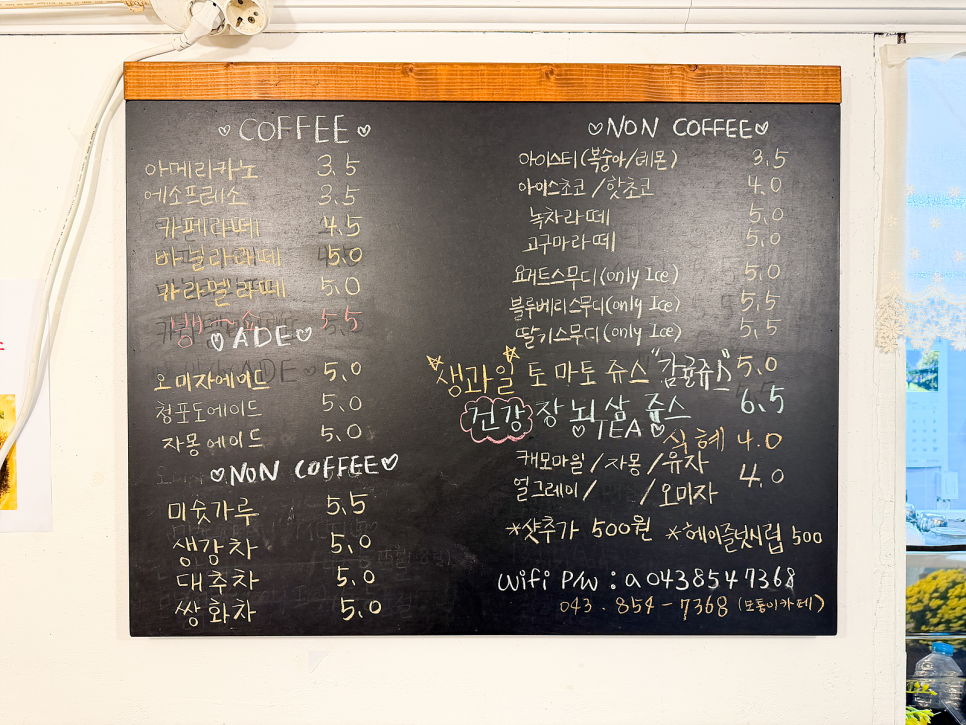 ♡COFFEE♡
아메리카노 3.5
에소프레소 3.5
카페라떼 4.5
바닐라라떼 5.0
카라멜라떼 5.0
5.5
♡ADE♡
오미자에이드 5.0
청포도에이드 5.0
자몽에이드 5.0
♡NON COFFEE♡
미숫가루 5.5
생강차 5.0
대추차 5.0
쌍화차 5.0
♡NON COFFEE♡
아이스티(복숭아/레몬) 3.5
아이스초코/핫초코 4.0
녹차라떼 5.0
고구마라떼 5.0
요거트스무디(only Ice) 5.0
블루베리스무디(only Ice) 5.5
딸기스무디(only Ice) 5.5
☆생과일☆ 토마토 쥬스 "감귤쥬스" 5.0
건강 장뇌삼 쥬스 6.5
♡TEA♡
식혜 4.0
캐모마일/자몽/유자
얼그레이/ /오미자 4.0
*샷추가 500원 *헤이즐넛시럽 500
Wifi P/W : a0438547368
043.854-7368 (모퉁이카페)